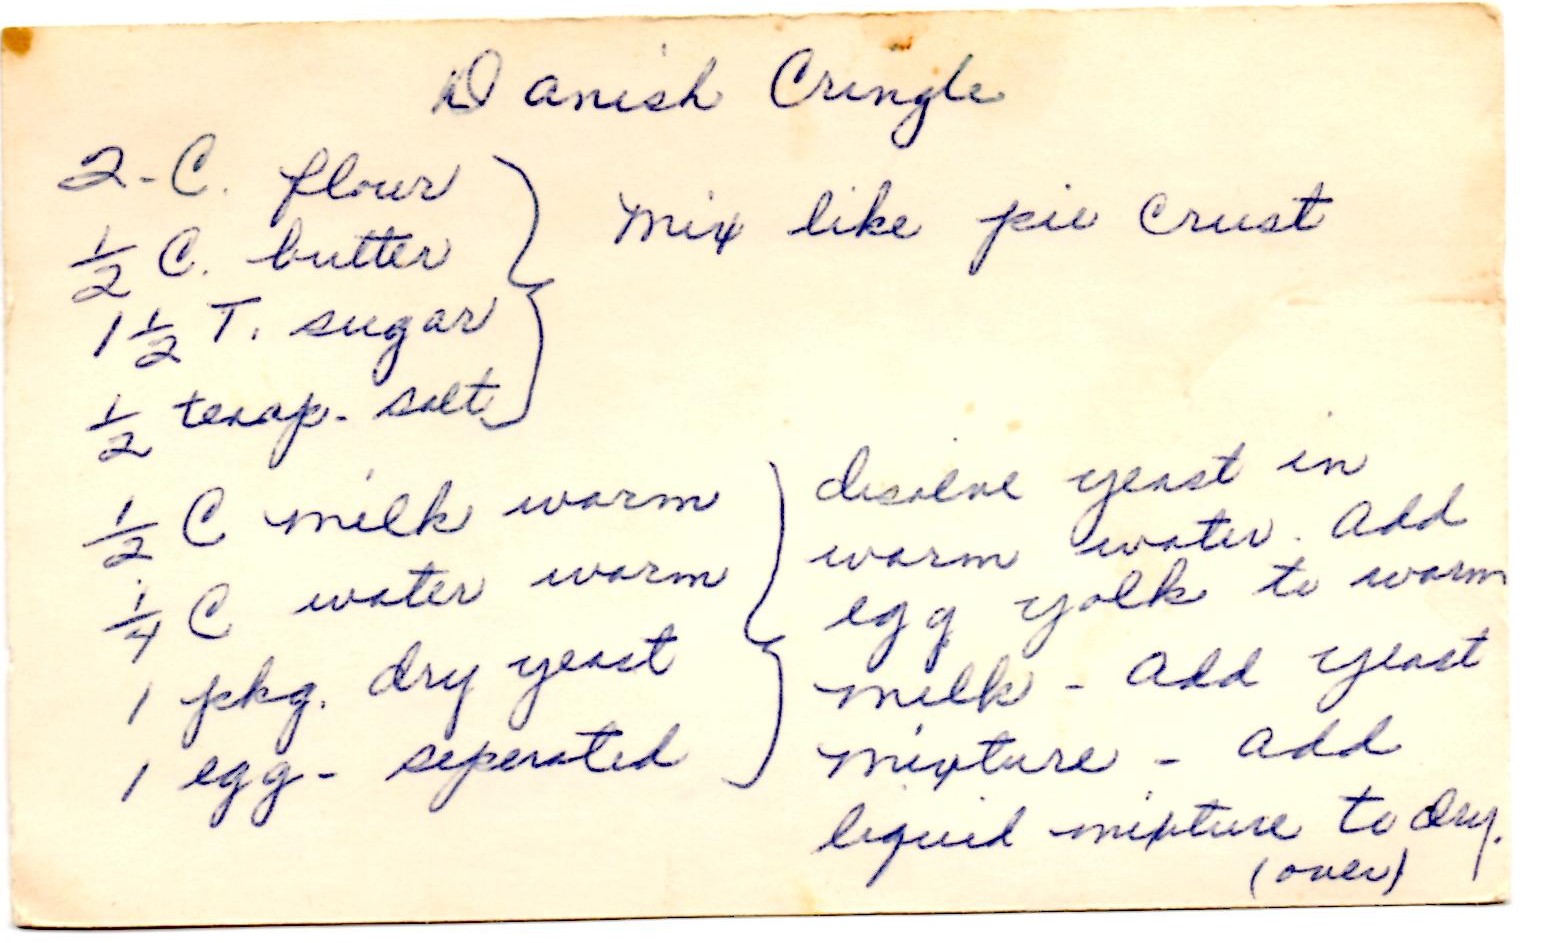 Danish Cringle
2-C. flour
1/2 C. butter
Mix like pie crust
1 1/2 T. sugar
1/2 teasp- salt
1/2 C milk warm
1/4 C water warm
1 pkg. dry yeast
1 egg- seperated
disolve yeast in
warm water. Add
egg yolk to warm
milk - Add yeast
mixture - Add
liquid mixture to dry.
(over)